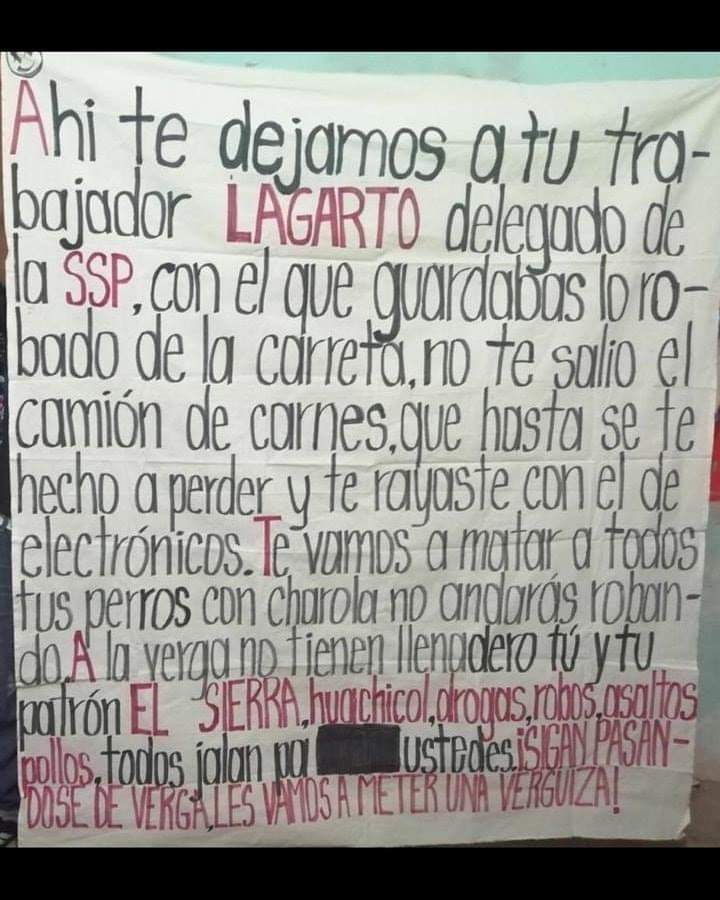 Ahi te dejamos a tu tra-
bajador LAGARTO delegado de
la SSP, con el que guardabas lo ro-
bado de la carreta, no te salio el
camión de carnes, que hasta se te
hecho a perder y te rayaste con el de
electrónicos. Te vamos a matar a todos
tus perros con charola no andarás roban-
do. A la verga no tienen llenadero tú y tu
patrón EL SIERRA, huachicol, drogas, robos, asaltos
pollos, todos jalan pa ustedes. ¡SIGAN PASAN-
DOSE DE VERGA, LES VAMOS A METER UNA VERGUIZA!